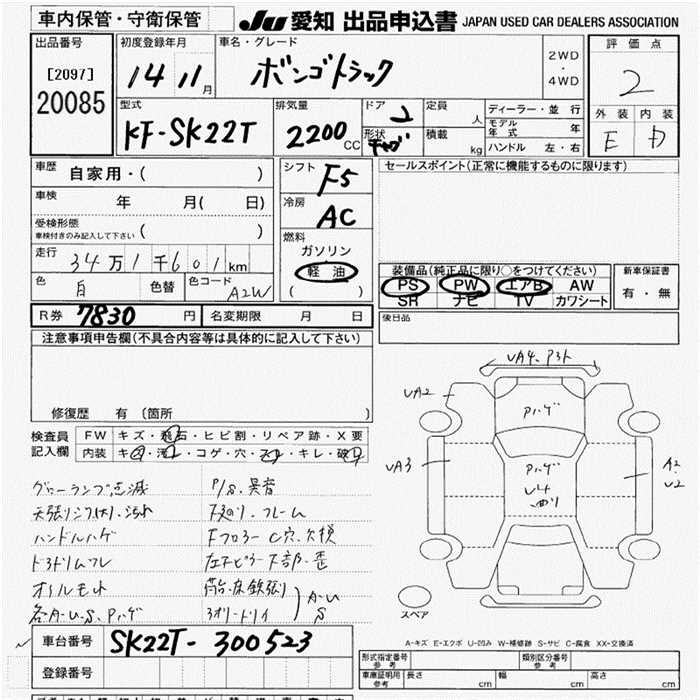 車内保管・守衛保管
JU 愛知 出品申込書 JAPAN USED CAR DEALERS ASSOCIATION
出品番号 初度登録年月 車名・グレード 評価点
[2097] 14 11月 ボンゴトラック 2WD・4WD 2
20085
型式 排気量 ドア 2 定員 人 ディーラー・並行 外装 内装
KF-SK22T 2200CC 形状 積載 kg モデル年式 年 E D
ハンドル 左・右
車歴 自家用・( ) シフト F5 セールスポイント(正常に機能するものに限ります)
車検 年 月( 日) 冷房 AC
受検形態
車検付きのみ記入して下さい ( ) 燃料
ガソリン
走行 34万1千601km 軽油
( )
色 白 色替 色コード A2W
装備品(純正品に限り○をつけてください) 新車保証書
PS PW エアB AW 有・無
SR ナビ TV カワシート
R券 7830円 名変期限 月 日 後日品
注意事項申告欄(不具合内容等は具体的に記入して下さい)
修復歴 有 〔箇所 〕
検査員 FW キズ・飛石・ヒビ割・リペア跡・X要
記入欄 内装 キズ・汚れ・コゲ・穴・スレ・キレ・破れ
グローランプ点滅 P/S.異音
天張りシワ
ハンドルハゲ Fフロアー C穴.欠損
左 下部.歪
オイルモレ 荷台.床鉄張り
各A・U・S.Pハゲ 3オリードライ
A・U
S
UA4.P3ト
UA2
Pハゲ
UA3
Pハゲ
U4
曲り
A2
U2
スペア
A-キズ E-エクボ U-凹み W-補修跡 S-サビ C-腐食 XX-交換済
車台番号 SK22T-300523
登録番号
形式指定番号 参考 類別区分番号 参考
車庫証明用 参考 長さ cm 幅 cm 高さ cm